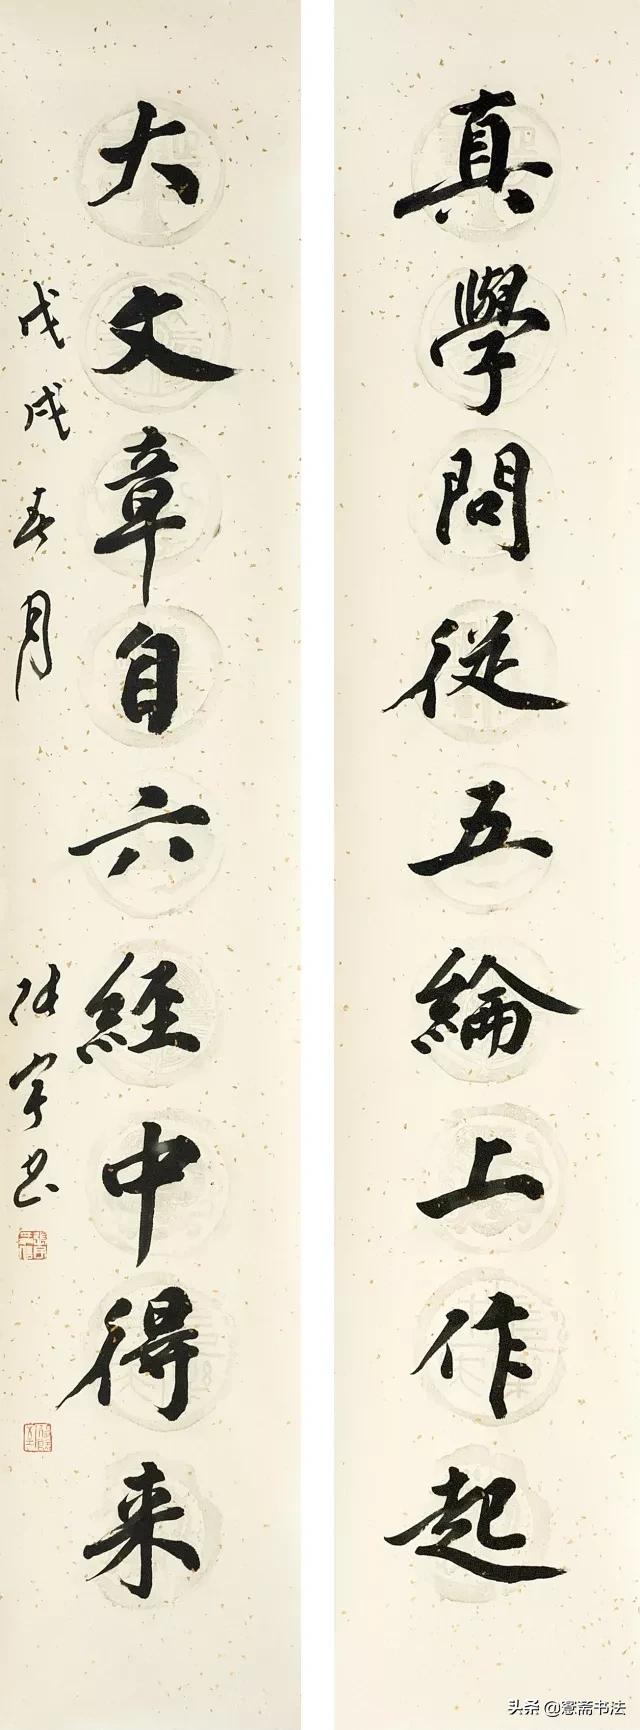 真學問從五綸上作起
大文章自六經中得来
戊戌春月
張宇书
头条 @寭斋书法